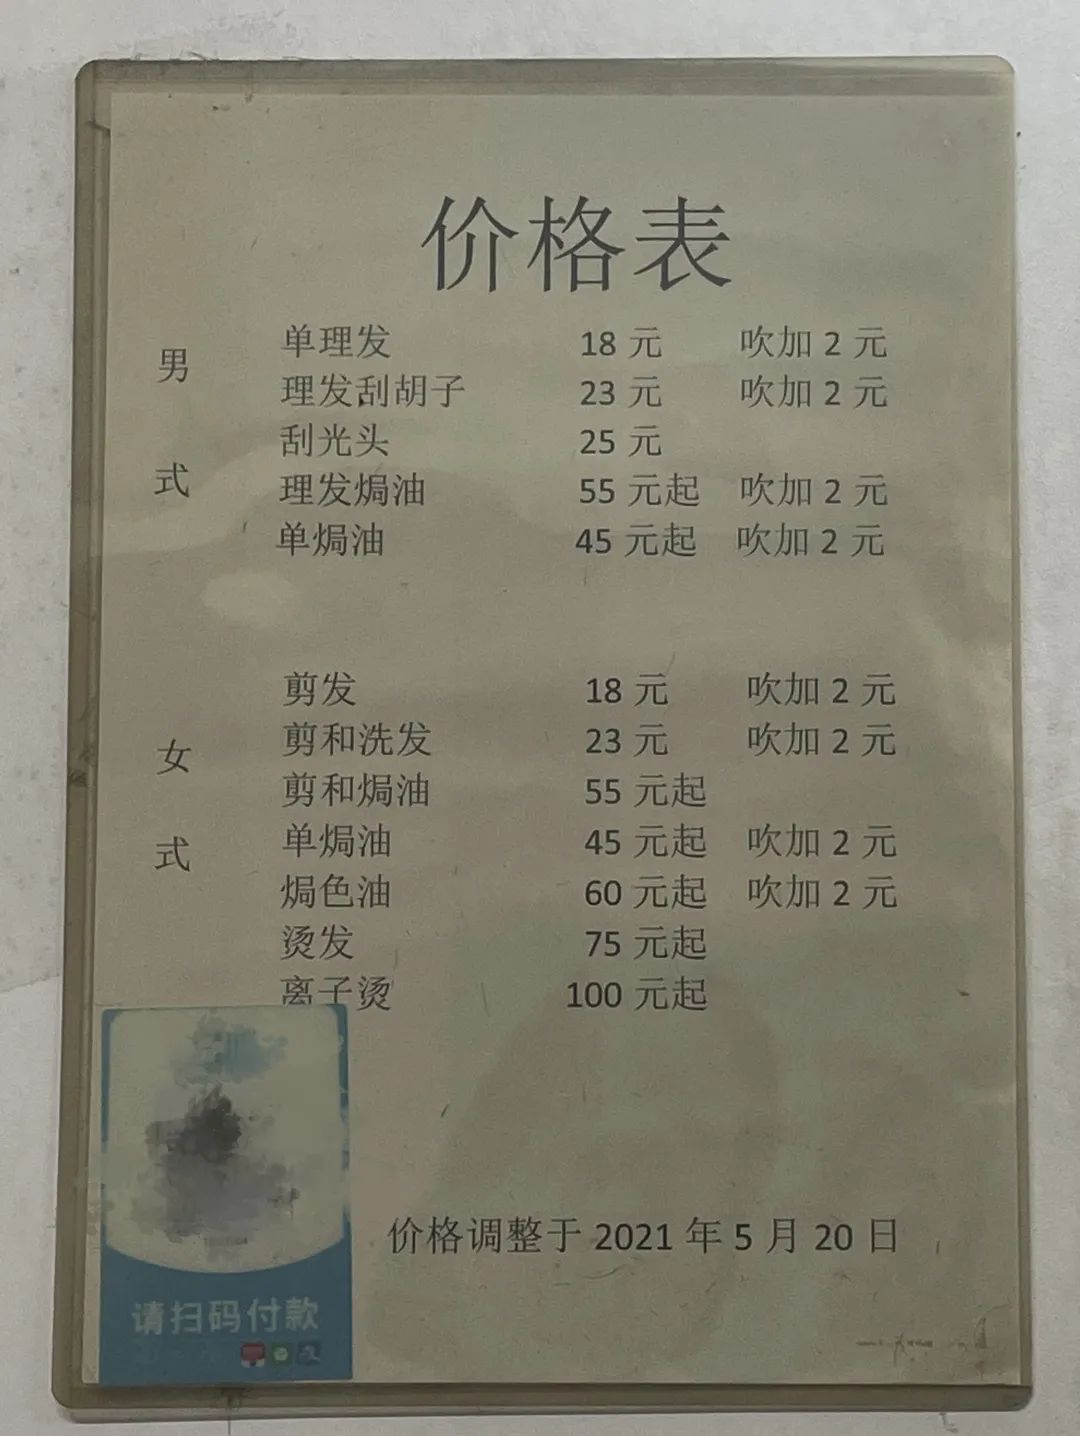 价格表
男式
单理发 18 元 吹加 2 元
理发刮胡子 23 元 吹加 2 元
刮光头 25 元
理发焗油 55 元起 吹加 2 元
单焗油 45 元起 吹加 2 元
女式
剪发 18 元 吹加 2 元
剪和洗发 23 元 吹加 2 元
剪和焗油 55 元起
单焗油 45 元起 吹加 2 元
焗色油 60 元起 吹加 2 元
烫发 75 元起
离子烫 100 元起
价格调整于 2021 年 5 月 20 日
请扫码付款